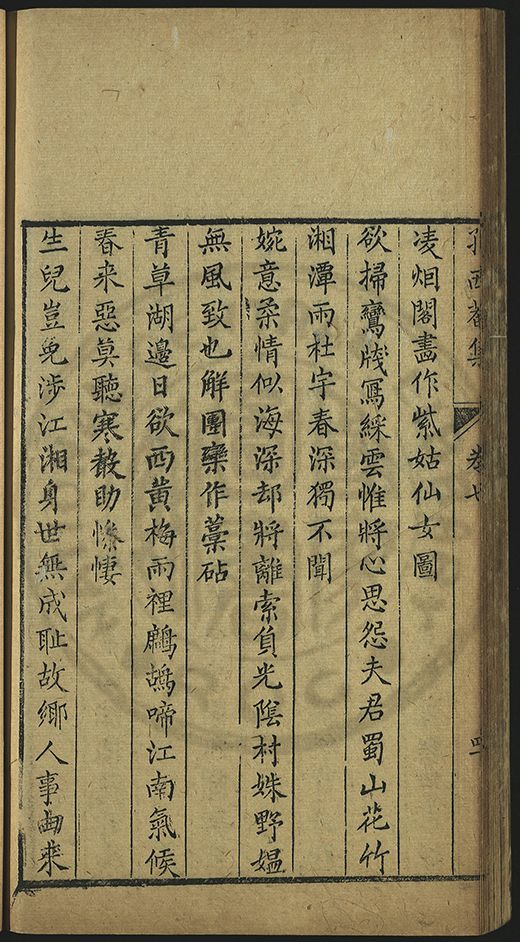 西菴集　卷七　四
凌烟閣畫作紫姑仙女圖
欲掃鸞牋寫綵雲惟將心思怨夫君蜀山花竹
湘潭雨杜宇春深獨不聞
婉意柔情似海深却將離索負光陰村姝野媪
無風致也解團欒作藁砧
青草湖邊日欲西黄梅雨裡鷓鴣啼江南氣候
春来惡莫聽寒殸助慘悽
生兒豈免涉江湘身世無成耻故鄉人事由来